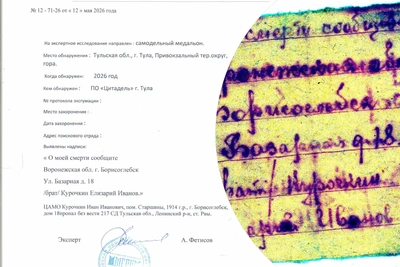 № 12 - 71-26 от « 12 » мая 2026 года
На экспертное исследования направлен : самодельный медальон.
Место обнаружения : Тульская обл., г. Тула, Привокзальный тер.округ,
гора.
Когда обнаружен: 2026 год
Кем обнаружен: ПО «Цитадель» г. Тула
№ протокола эксгумации :
Место захоронение: -
Дата захоронение :
Адрес поискового отряда :
Выявлены надписи:
« О моей смерти сообщите
Воронежская обл. г. Борисоглебск
Ул. Базарная д. 18
/брат/ Курочкин Елизарий Иванов.»
ЦАМО Курочкин Иван Иванович, пом. Старшины, 1914 г.р., г. Борисоглебск,
дом 18пропал без вести 217 СД Тульская обл., Ленинский р-н, ст. Рвы.
Эксперт А. Фетисов
смерти сообщ
ронежская об
орисоглебск
Базарная д. 18
брат/ Курочкин
Иванов